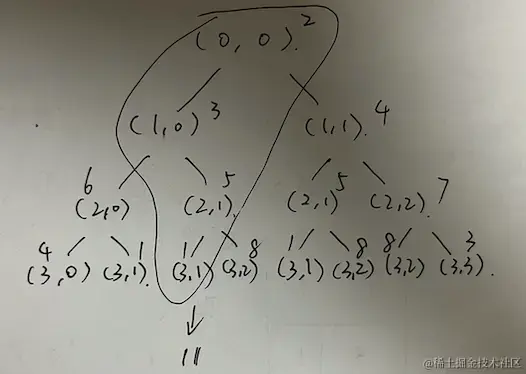 (0, 0). 2
(1,0) 3 (1,1). 4
6 5 5 7
(2,0) (2,1) (2,1) (2,2).
4 1 1 8 1 8 8 3
(3,0) (3,1). (3,1) (3,2) (3,1) (3,2) (3,2) (3,3).
11
@稀土掘金技术社区